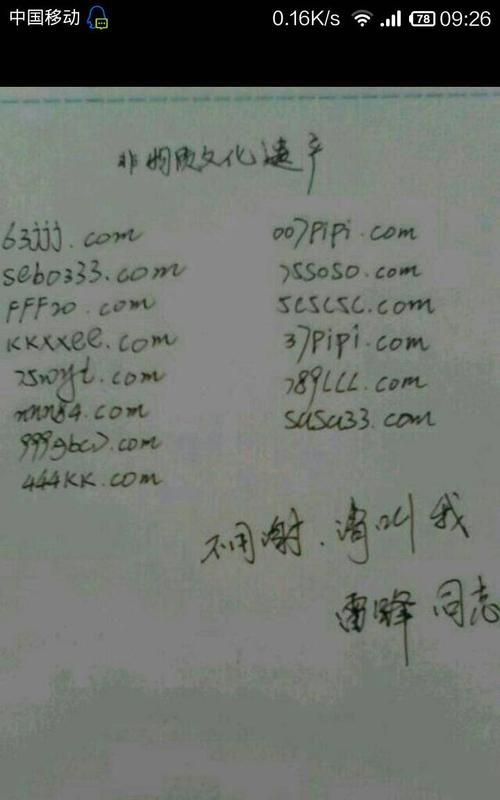 中国移动 0.16K/s 78 09:26
非物质文化遗产
63jjj.com 007pipi.com
sebo333.com 75soso.com
FFF20.com 5c5c5c.com
kkxxee.com 37pipi.com
25wyt.com 789LLL.com
nnn84.com susu33.com
444KK.com
不用谢.请叫我
雷锋同志